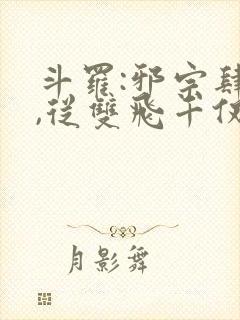 斗羅:邪宗肆
,從雙飛千仞
月影舞